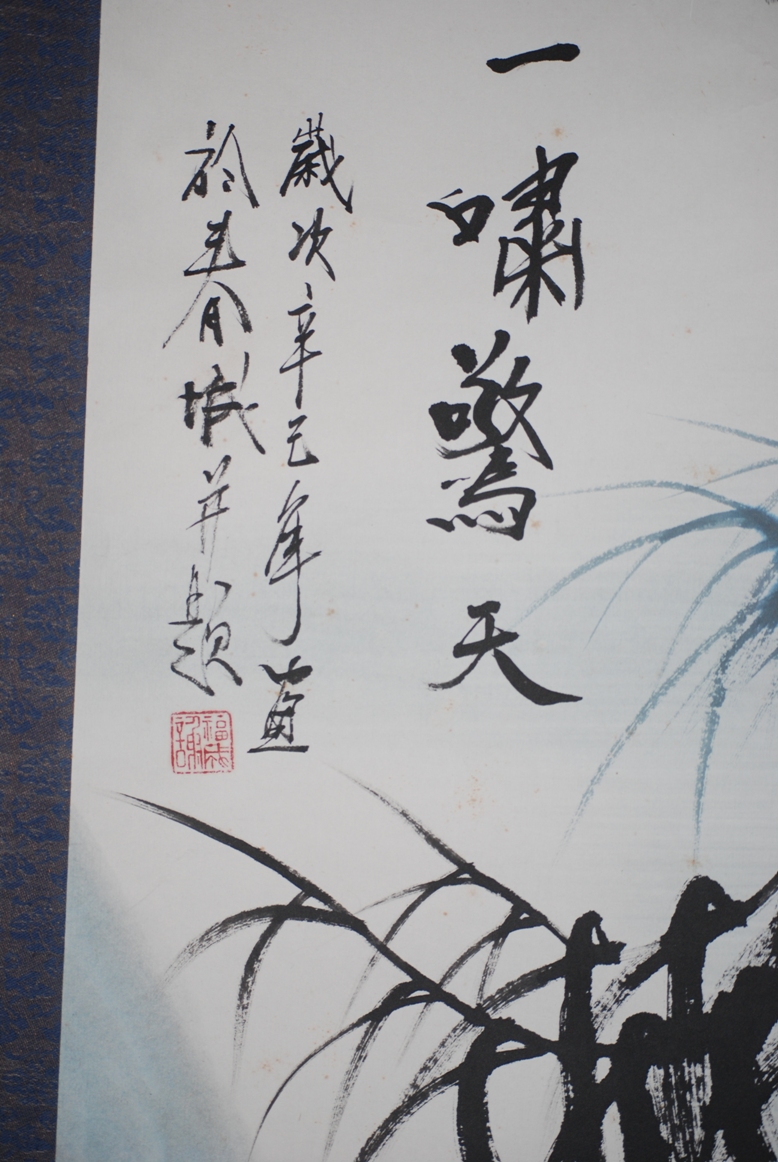 一嘯驚天
歲次辛巳年畫
於春城并題
福成
謝